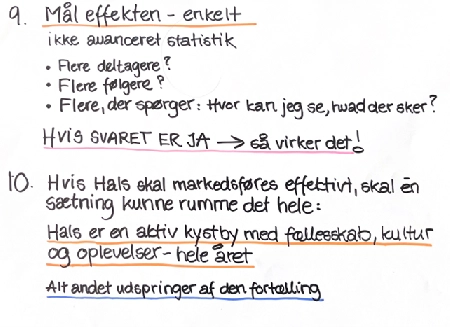 9. Mål effekten - enkelt
ikke avanceret statistik
• Flere deltagere?
• Flere følgere?
• Flere, der spørger: Hvor kan jeg se, hvad der sker?
HVIS SVARET ER JA → så virker det!
10. Hvis Hals skal markedsføres effektivt, skal én
sætning kunne rumme det hele:
Hals er en aktiv kystby med fælleskab, kultur
og oplevelser - hele året
Alt andet udspringer af den fortælling